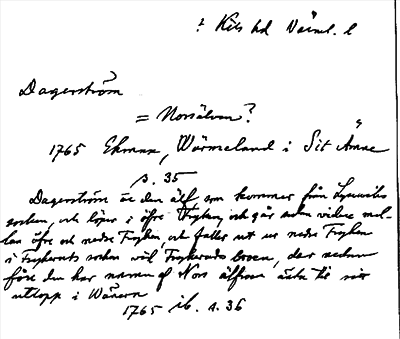 ? Kils hd Värml. l
Dagerström
= Norsälven?
1765 Ekman, Wärmeland i Sit Ämne
s. 35
Dagerström är den älf som kommer från Lysviks
socken, och löper i öfre Fryken, och går sedan vidare mel-
lan öfre och nedre Fryken, och faller ut ur nedre Fryken
i Frykeruds socken wid Frykeruds broen, der sedan
före den har namn af Nors älfven ända til sit
utlopp i Wänern
1765 ib. s. 36